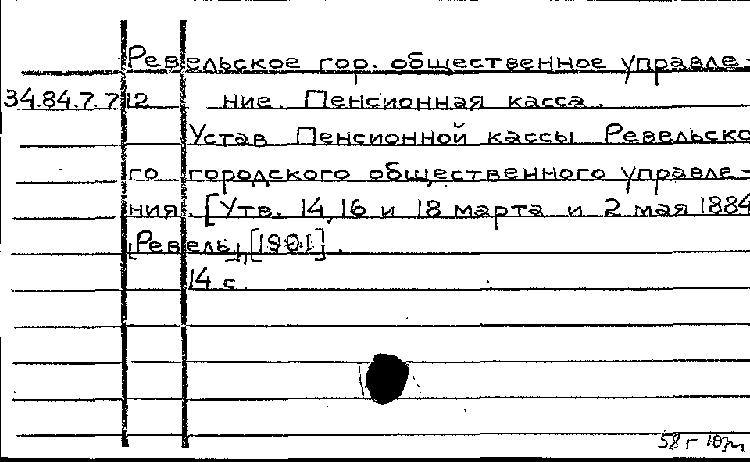 Ревельское гор. общественное управле-
34.84.7.712 ние. Пенсионная касса.
Устав Пенсионной кассы Ревельско
го городского общественного управле-
ния. [Утв. 14, 16 и 18 марта и 2 мая 1884
[Ревель], [1901].
14 с.
58 г